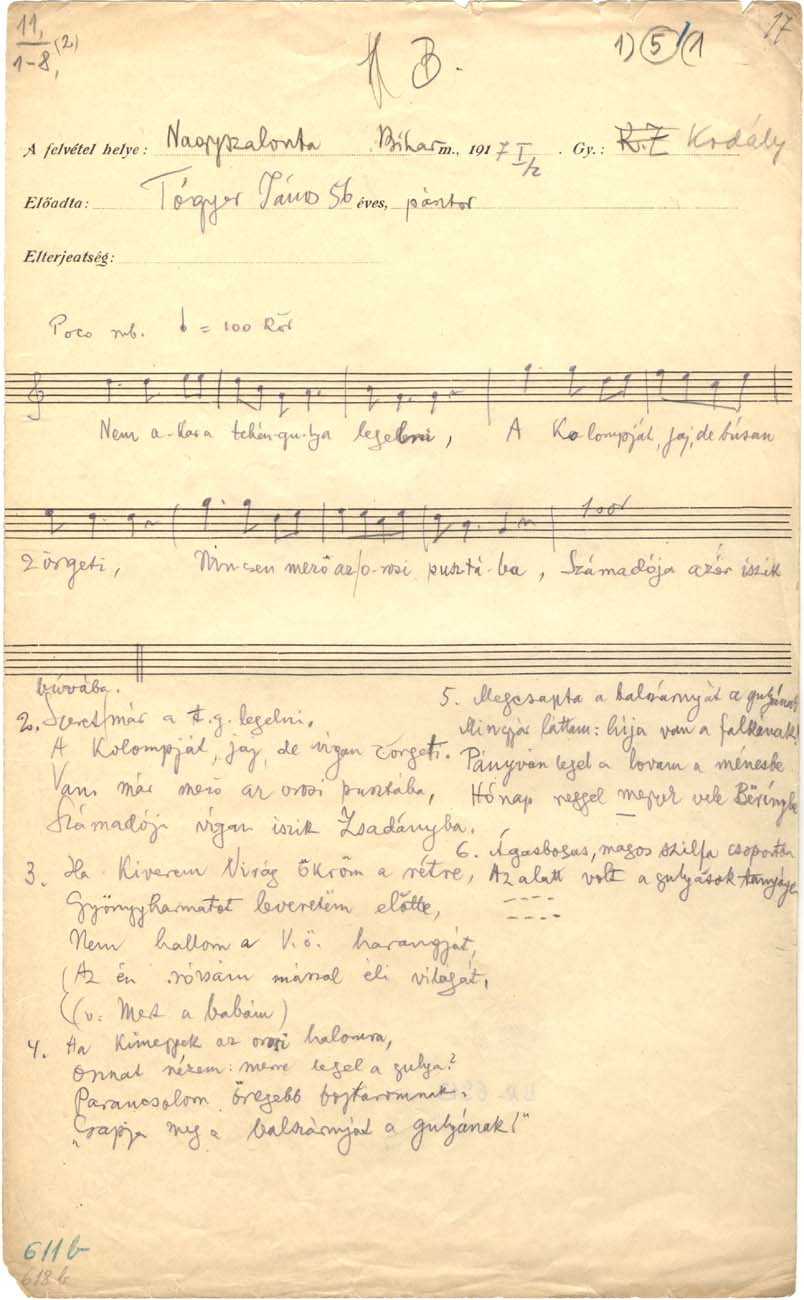 11,
1-8, (2)
B.
1) 5/1
17
A felvétel helye: Nagyszalonta Bihar m., 1917 I/2. Gy.: K. Z Kodály
Előadta: Tógyer János 56 éves, pásztor
Elterjeatség:
Poco rub. = 100 Kör
Nem a-kara tehén-gu-lya legelni, A Ko-lompját, jaj, de búsan
zörgeti, Nin-csen mező az o-rosi pusztá-ba, Számadója azér iszik
búvába.
2. Szeret már a t. g. legelni.
A kolompját, jaj, de vigan zörgeti.
Van már mező az orosi pusztába,
Számadója vigan iszik Zsadányba.
3. Ha kiverem Virág ökröm a rétre,
Gyöngyharmatot leveretem előtte,
Nem hallom a V. ö. harangját,
(Az én rózsám mással éli világát,
((v: Mert a babám)
4. Ha kimegyek az orosi halomra,
Onnat nézem: merre legel a gulya?
Parancsolom öregebb bojtáromnak:
„Csapja meg a balszárnyát a gulyának!"
5. Megcsapta a balszárnyát a gulyának
Mingyár láttam: híja van a falkának!
Pányván legel a lovam a ménesbe
Hónap reggel megyek vele
6. Ágasbogas, magos szilfa csoportba
Az alatt volt a gulyások tanyája
611b
618b